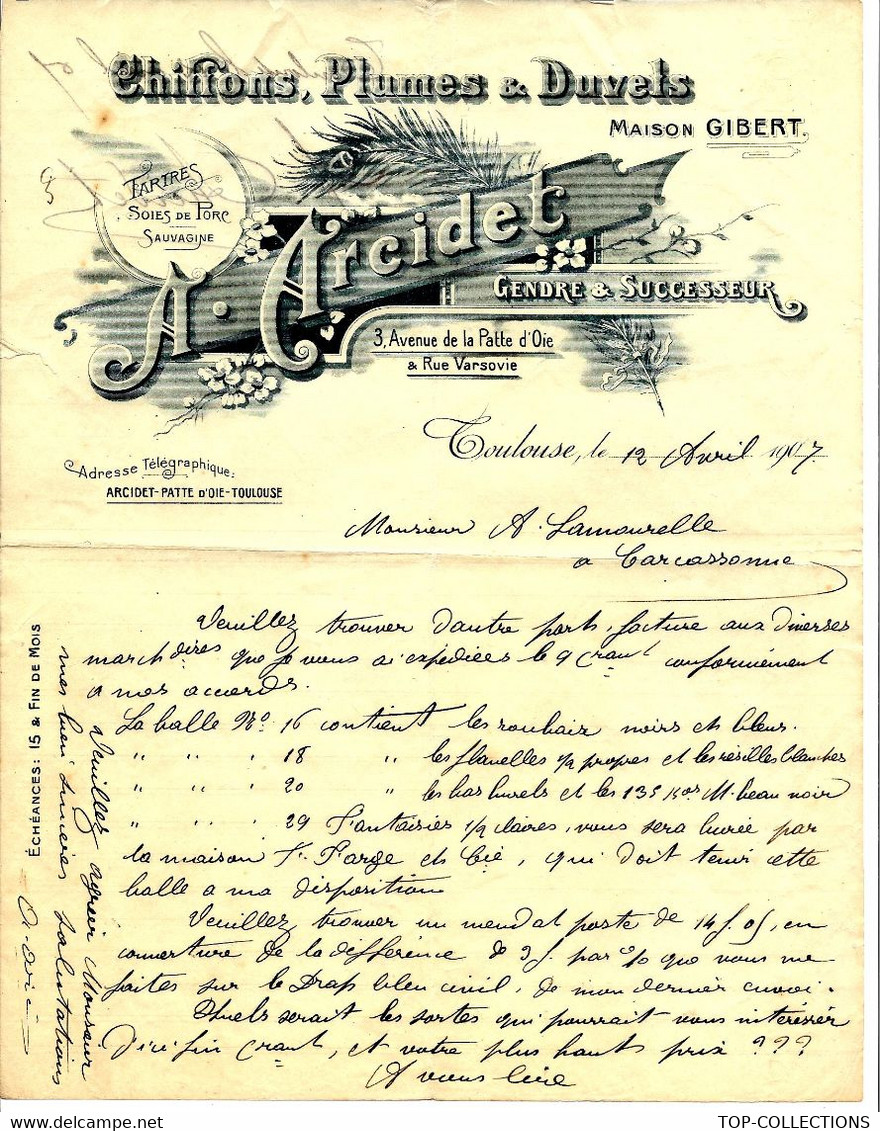 Chiffons, Plumes & Duvets
MAISON GIBERT.
TARTRES
SOIES DE PORC
SAUVAGINE
A. Arcidet
GENDRE & SUCCESSEUR
3, Avenue de la Patte d'Oie
& Rue Varsovie
Toulouse, le 12 Avril 1907
Adresse Télégraphique:
ARCIDET-PATTE D'OIE-TOULOUSE
Monsieur A. Lamourelle
a Carcassonne
Veuillez trouver d'autre part, facture aux diverses
march dires que je vous ai expédiées le 9 crant conformément
a nos accords.
La balle No 16 contient les roubaix noirs et bleus.
" " " 18 " les flanelles 1/2 propres et les résilles blanches
" " " 20 " les bas et les 135 Kos M. beau noir
" " " 29 Fantaisies 1/2 claires, vous sera livrée par
la maison F. Farge et Cie, qui doit tenir cette
balle a ma disposition
Veuillez trouver un mendat poste de 14f.05, en
couverture de la différence de 3f. par % que vous me
faites sur le Drap bleu civil, de mon dernier envoi.
Quels serait les sortes qui pourrait vous intéresser
D'ici fin crant, et votre plus hauts prix ???
A vous lire
Veuillez agréer Monsieur
mes bien sincères salutations
ÉCHÉANCES: 15 & FIN DE MOIS
TOP-COLLECTIONS